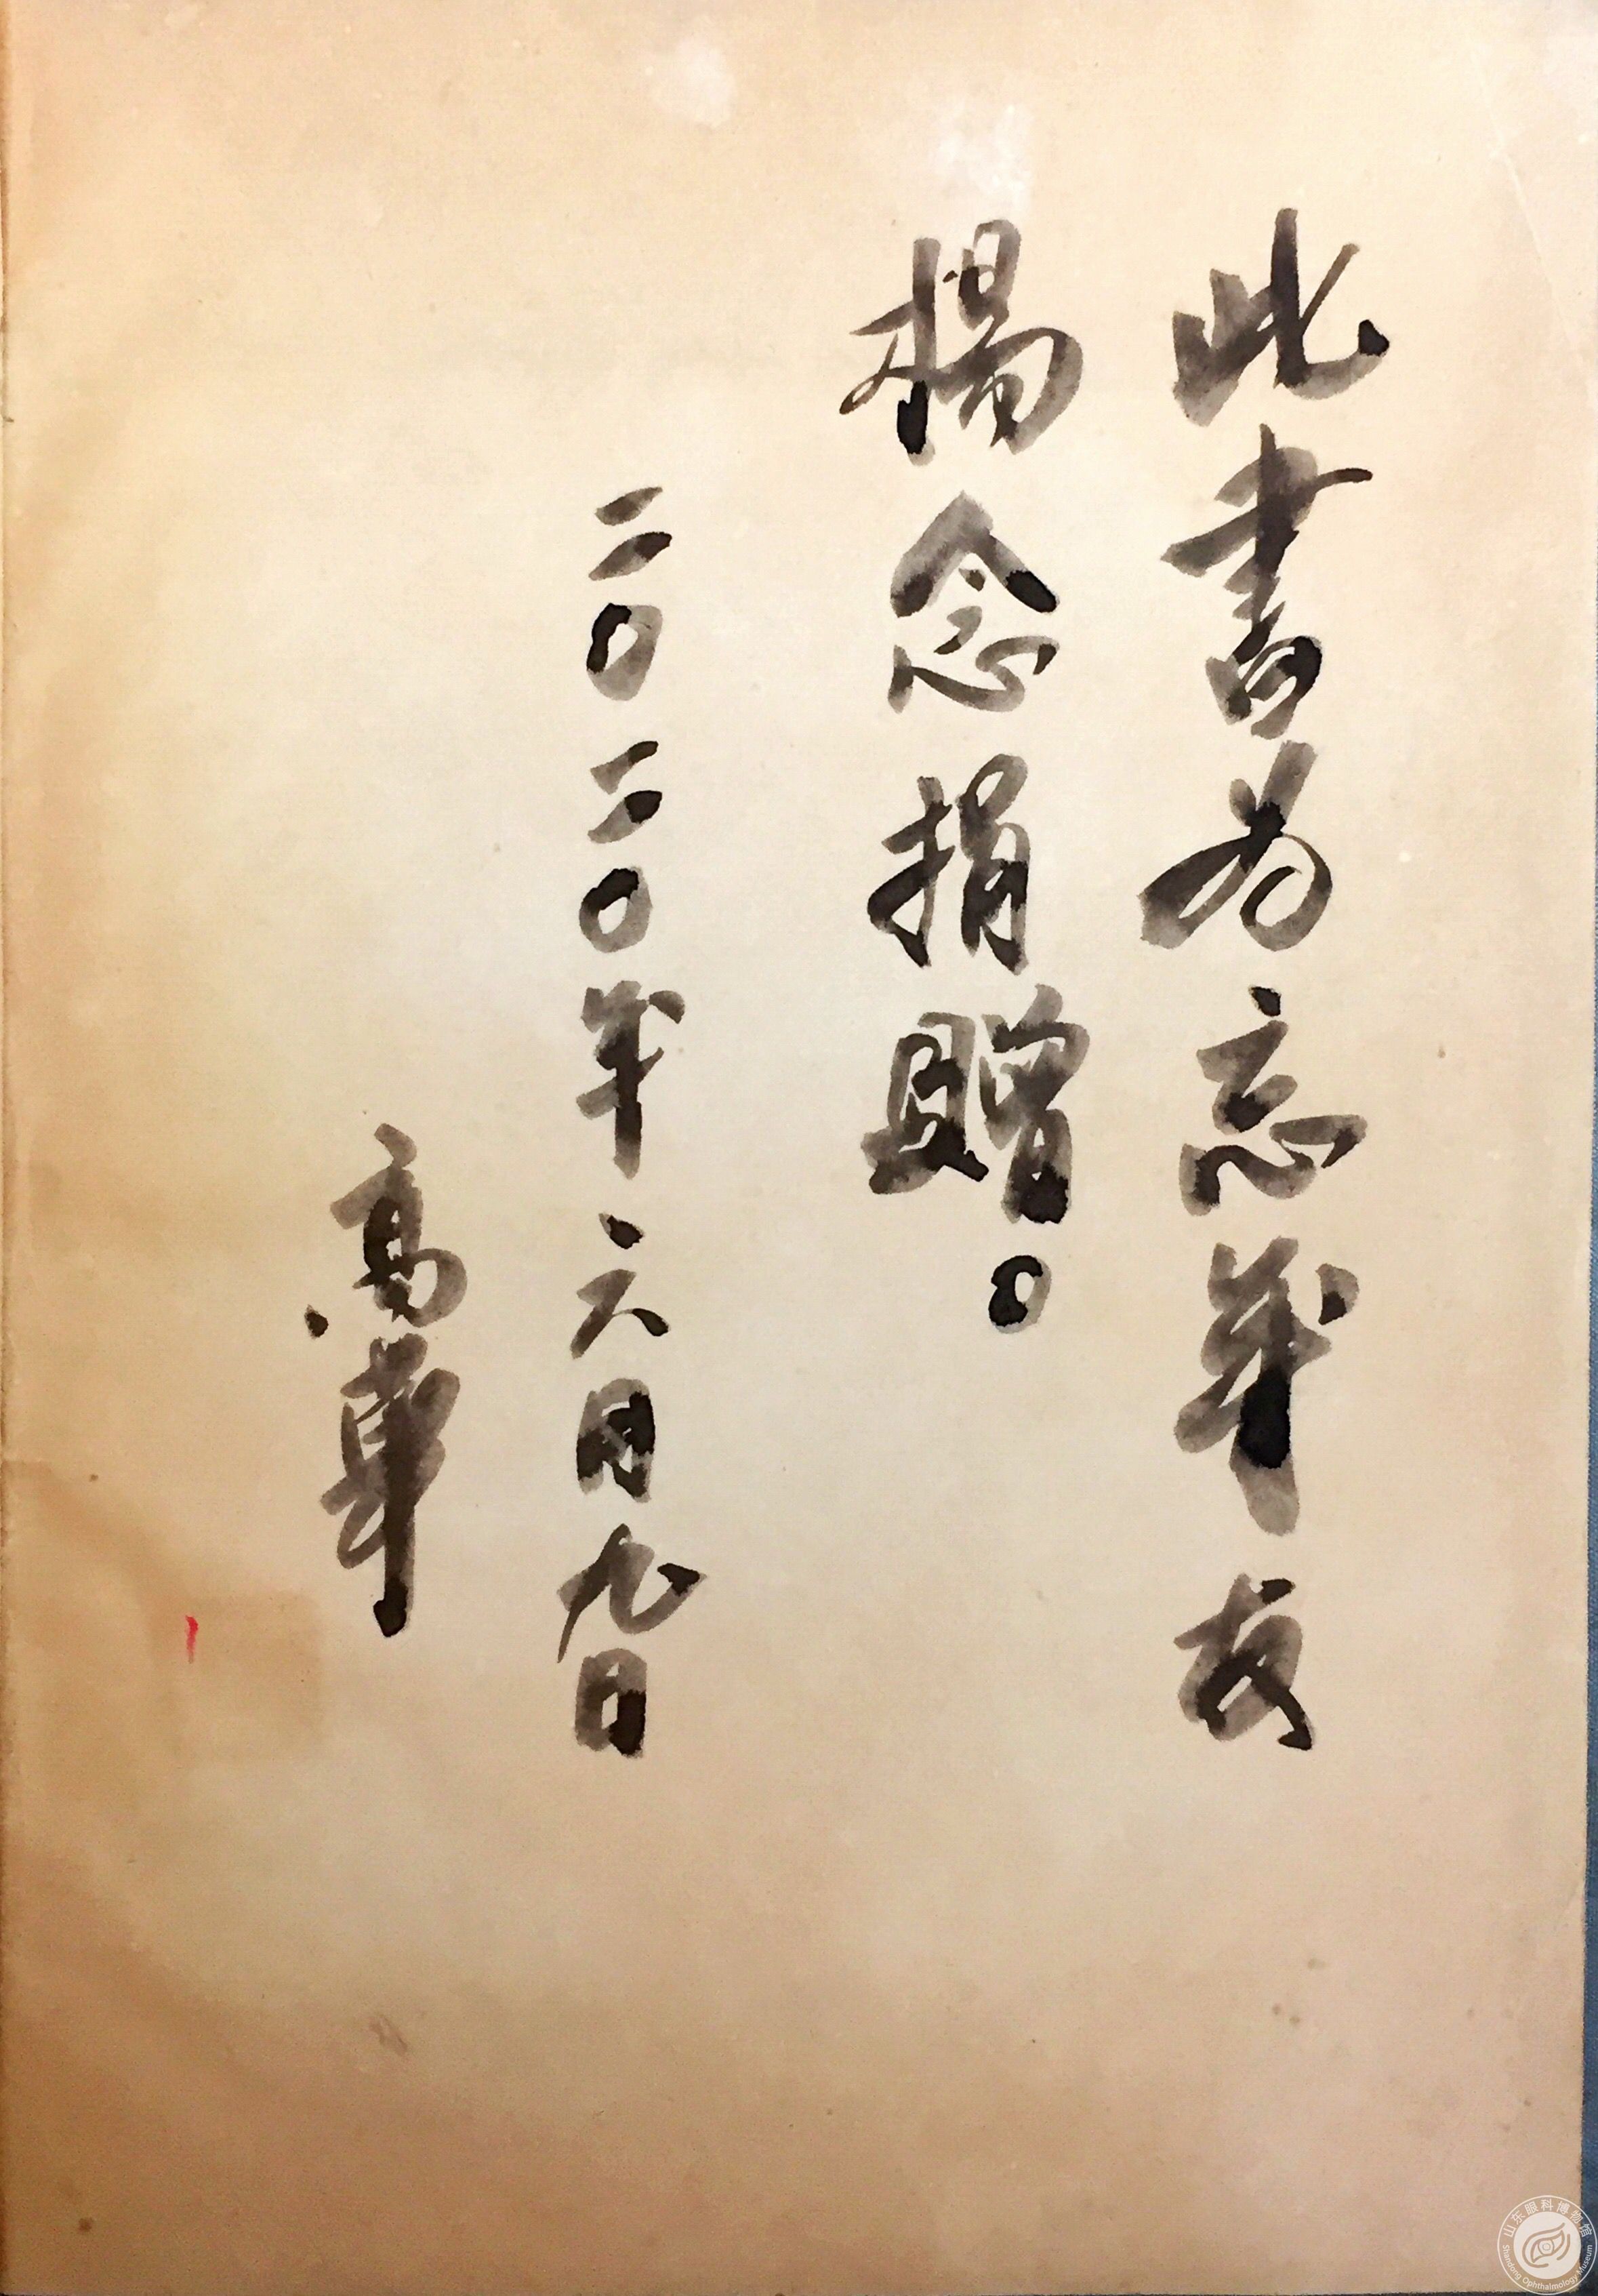 此书为忘年友
楊念捐贈。
二〇二〇年六月九日
高
山东眼科博物馆
Shandong Ophthalmology Museum